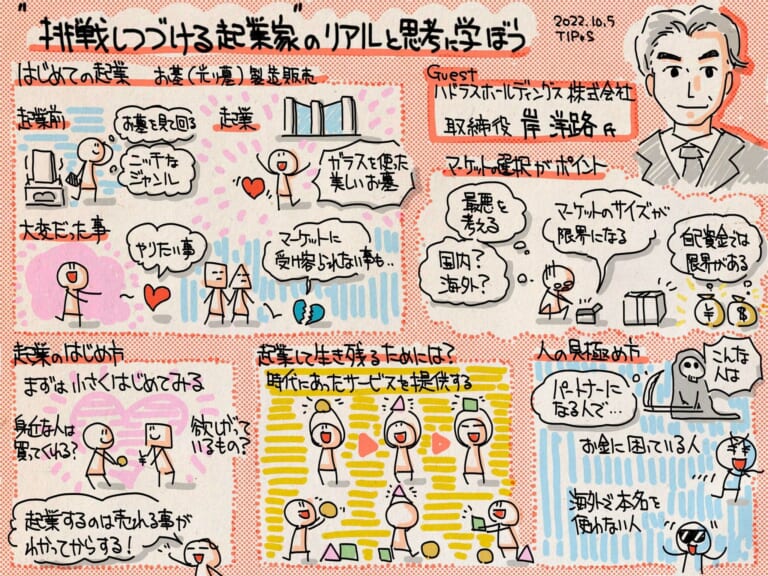 "挑戦しつづける起業家"のリアルと思考に学ぼう
2022.10.5
TIP*S
Guest
ハドラスホールディングス株式会社
取締役 岸 洋路 氏
はじめての起業 お墓(光り墓)製造販売
起業前
お墓を見て回る
ニッチな
ジャンル
起業
ガラスを使った
美しいお墓
大変だった事
やりたい事
マーケットに
受け容られない事も..
マーケットの選択がポイント
最悪を
考える
国内?
海外?
マーケットのサイズが
限界になる
自己資金では
限界がある
¥
$
起業のはじめ方
まずは小さくはじめてみる
身近な人は
買ってくれる?
¥
欲しがって
いるもの?
起業するのは売れる事が
わかってからする!
起業して生き残るためには?
時代にあったサービスを提供する
人の見極め方
パートナーに
なる人で…
こんな
人は
お金に困っている人
¥¥
海外で本名を
使わない人